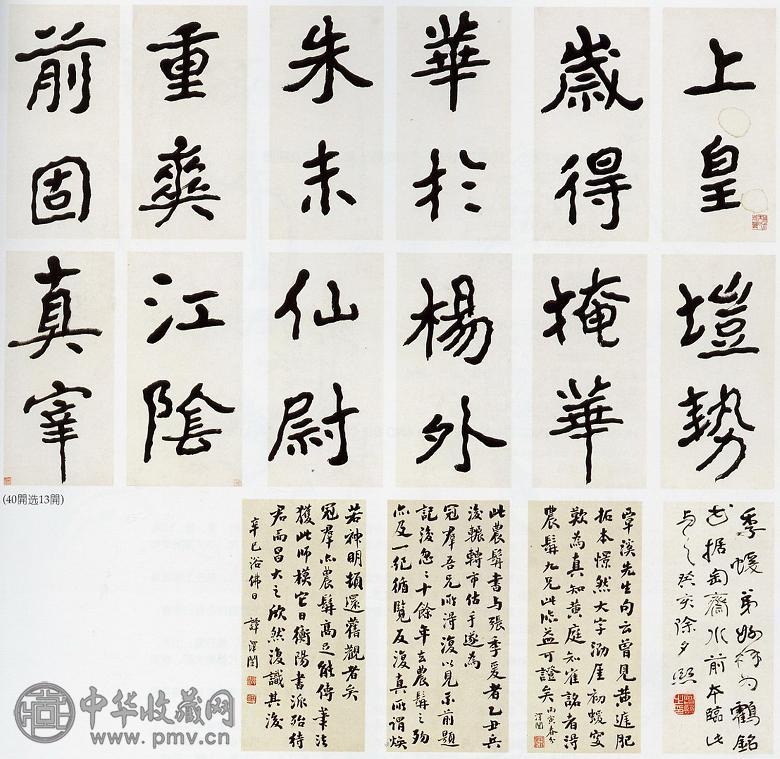 上皇
歲得
華於
朱未
重爽
前固
塏勢
掩華
楊外
仙尉
江陰
真宰
(40開选13開)
季蝯弟好 鶴銘
据匋齋水前本臨此
與之癸亥除夕熙
覃溪先生句云曾見黃進肥
拓本憬然大字勒厓初蝯叟
歎為真知黃庭知 銘者得
農髯九兄此臨益可證矣 丙寅春分
澤闓
此農髯書与張季爰者乙丑兵
後輾轉市估手遂為
冠羣吾兄所得復以見示前題
記後忽忽十餘年去農髯之歿
亦及一紀循覽反復真所謂煥
若神明頓還舊觀者矣
冠羣亦農髯高足能傳筆法
獲此師模它日衡陽書派殆待
君而昌大之欣然復識其後
辛巳浴佛日 譚澤闓
中华收藏网
www.pmv.cn